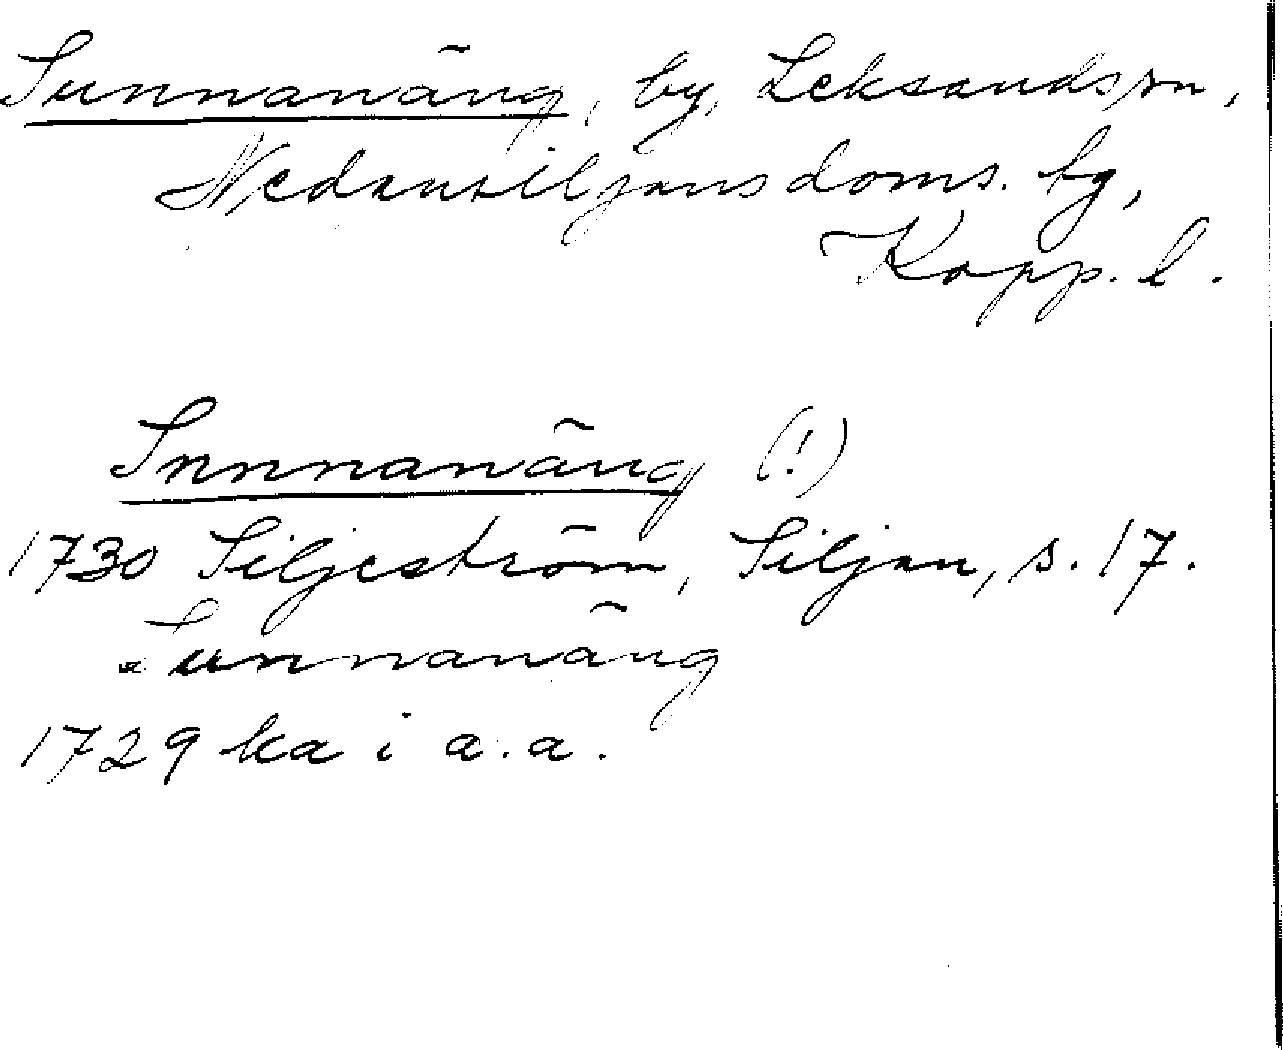 Sunnanäng, by, Leksands sn,
Nedansiljans doms. tg,
Kopp. l.
Snnnanäng (!)
1730 Siljeström, Siljan, s. 17.
Sunnanäng
1729 ka i a.a.